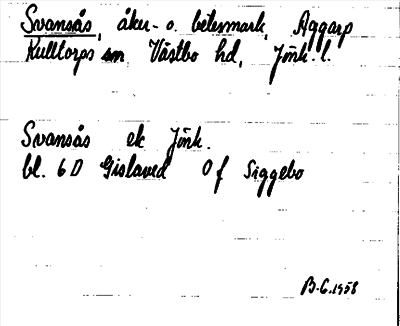 Svansås, åker- o. betesmark, Aggarp
Kulltorps sn Västbo hd, Jönk. l.
Svansås ek Jönk.
bl. 6D Gislaved 0f Siggebo
B-G. 1958